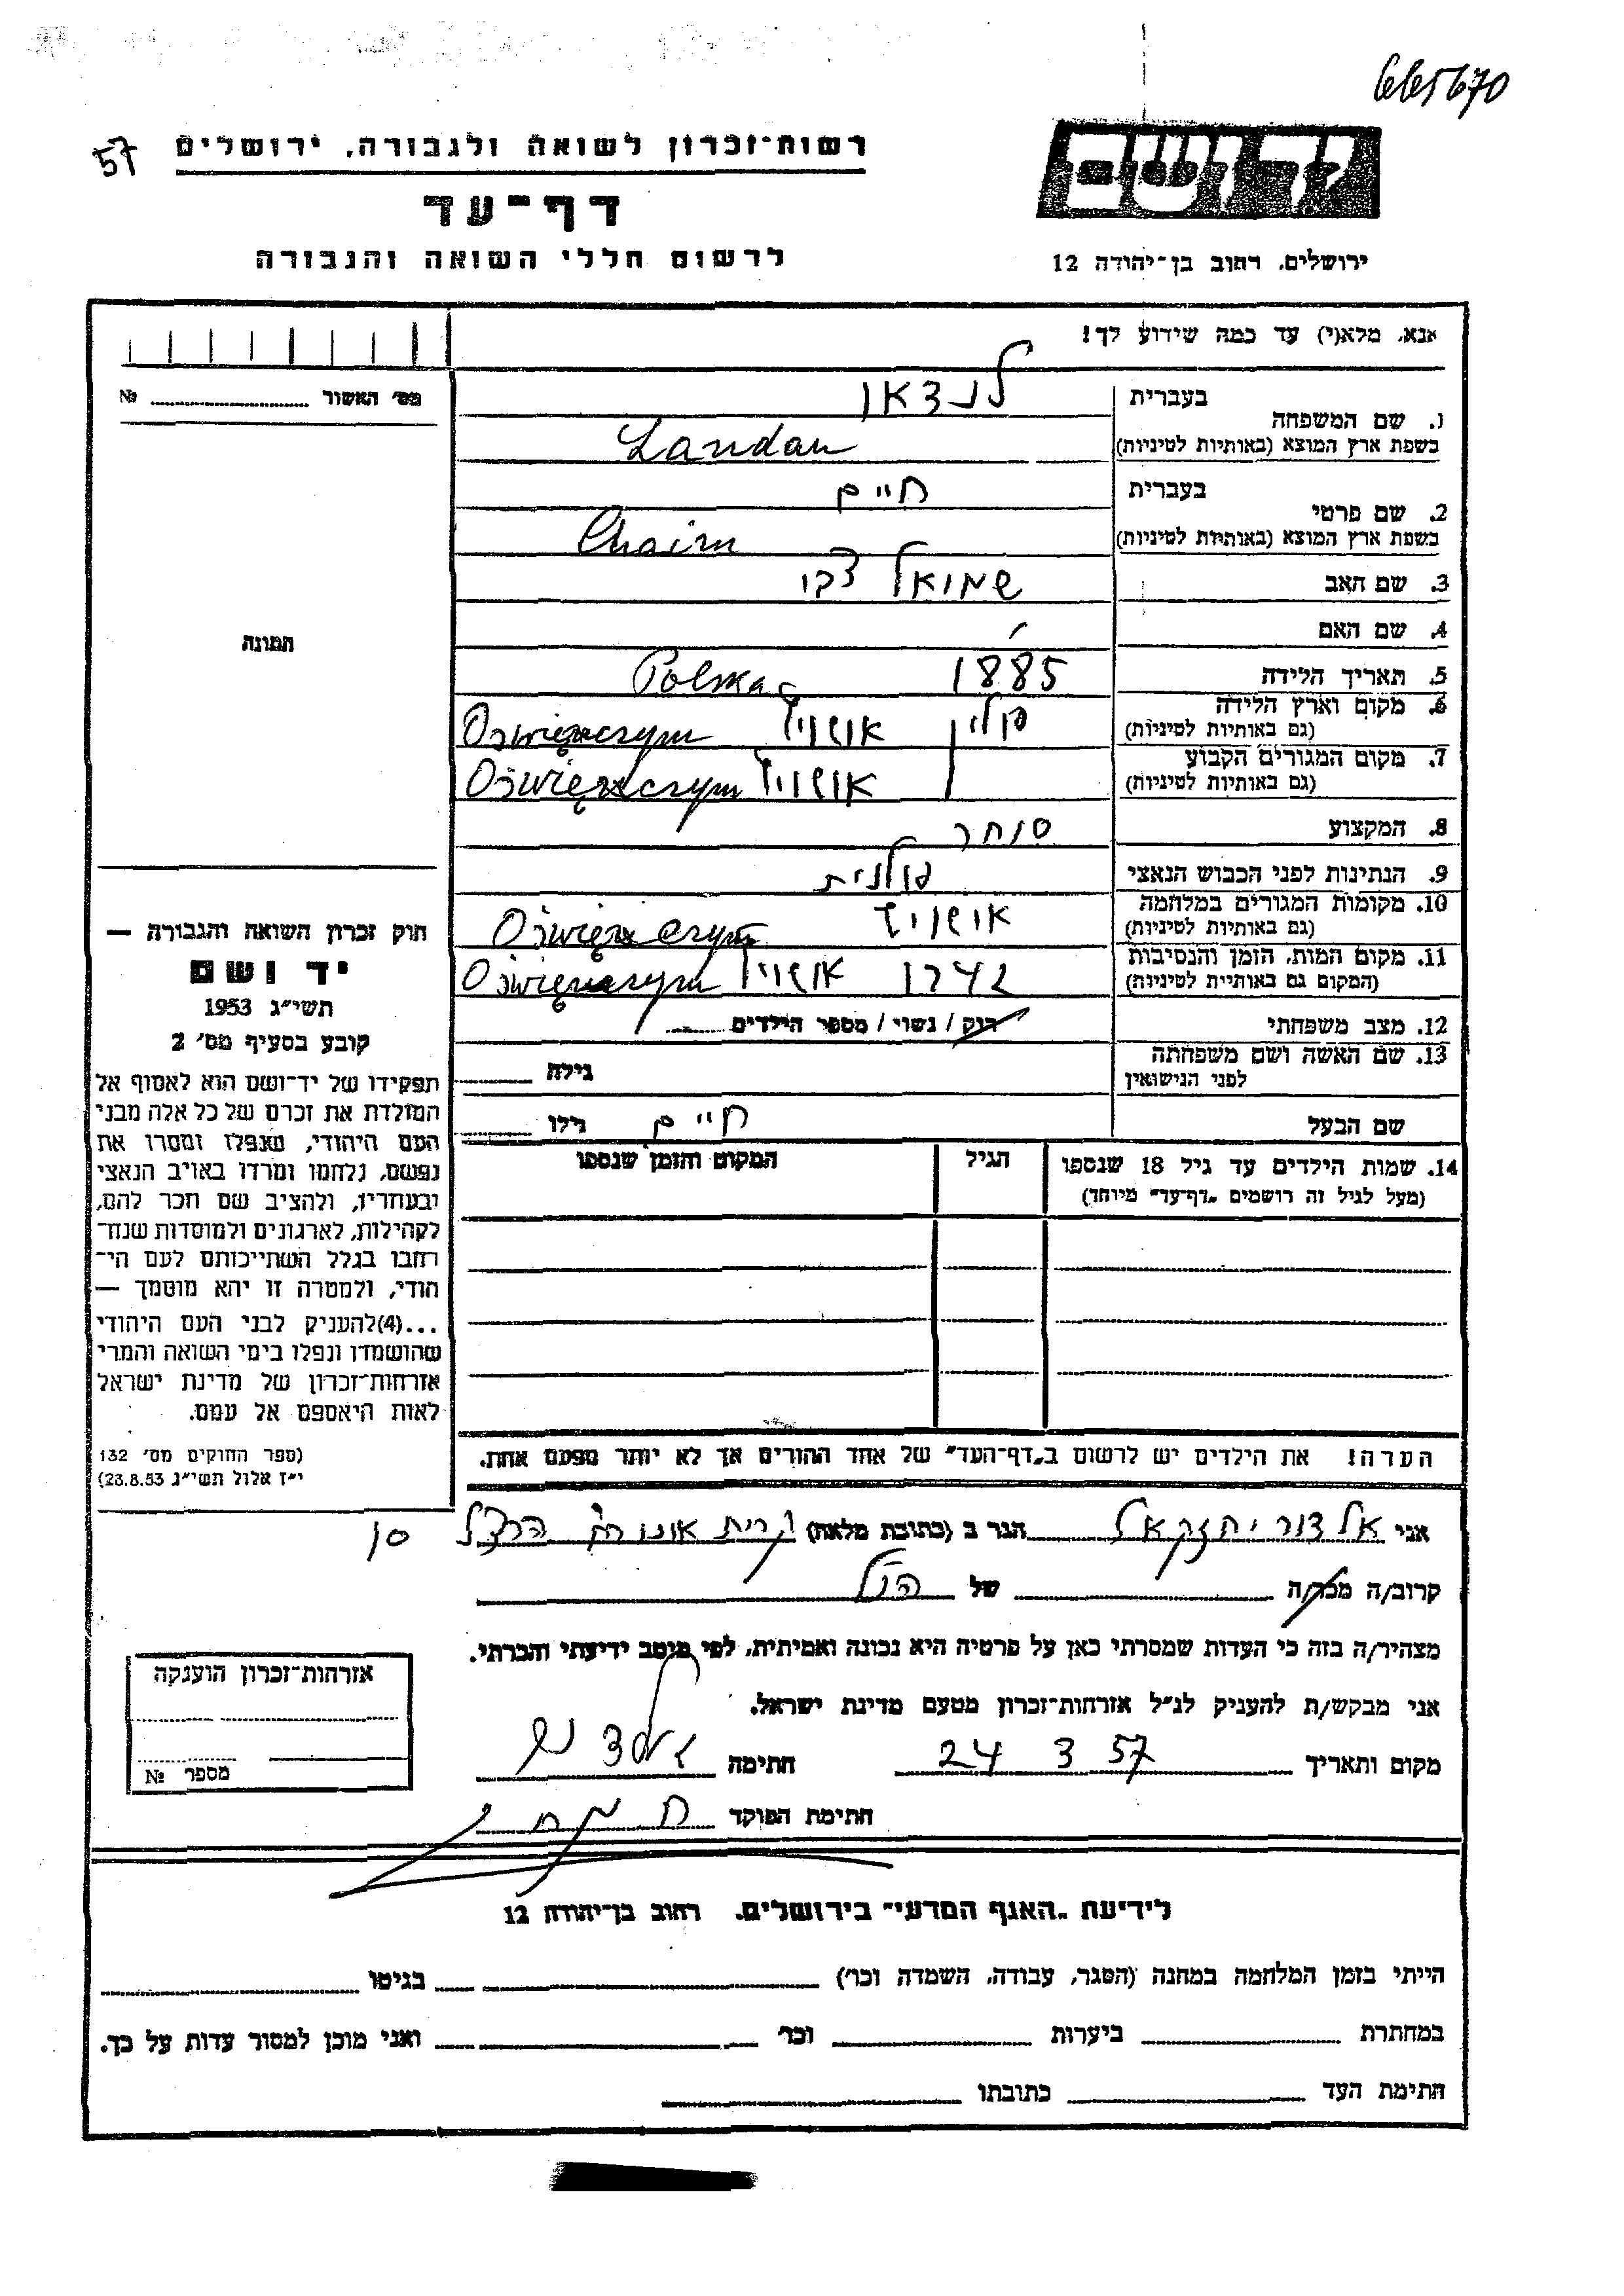 665670
57
רשות־זכרון לשואה ולגבורה, ירושלים
דף־עד
לרשום חללי השואה והגבורה
ידושם
ירושלים, רחוב בן־יהודה 12
אנא, מלא(י) עד כמה שידוע לך!
מס' האשור № 
1. שם המשפחה
בעברית לנדאו
בשפת ארץ המוצא (באותיות לטיניות) Landau
2. שם פרטי
בעברית חיים
בשפת ארץ המוצא (באותיות לטיניות) Chaim
3. שם האב שמואל צבי
4. שם האם
5. תאריך הלידה 1885 Polska
6. מקום וארץ הלידה פולין אושויץ
(גם באותיות לטיניות)
7. מקום המגורים הקבוע אושויץ
(גם באותיות לטיניות)
8. המקצוע סוחר
9. הנתינות לפני הכבוש הנאצי פולנית
10. מקומות המגורים במלחמה אושויץ
(גם באותיות לטיניות)
11. מקום המות, הזמן והנסיבות 1942 אושויץ
(המקום גם באותיות לטיניות)
12. מצב משפחתי רוק / נשוי / מספר הילדים
13. שם האשה ושם משפחתה
לפני הנישואין
גילה
שם הבעל חיים גילו
14. שמות הילדים עד גיל 18 שנספו
(מעל לגיל זה רושמים "דף־עד" מיוחד)
הגיל
המקום והזמן שנספו
התמונה
חוק זכרון השואה והגבורה —
יד ושם
תשי"ג 1953
קובע בסעיף מס' 2
תפקידו של יד־ושם הוא לאסוף אל
המולדת את זכרם של כל אלה מבני
העם היהודי, שנפלו ומסרו את
נפשם, נלחמו ומרדו באויב הנאצי
ובעוזריו, ולהציב שם וזכר להם,
לקהילות, לארגונים ולמוסדות שנח־
רבו בגלל השתייכותם לעם הי־
הודי, ולמטרה זו יהא מוסמך —
...(4)להעניק לבני העם היהודי
שהושמדו ונפלו בימי השואה והמרי
אזרחות־זכרון של מדינת ישראל
לאות היאספם אל עמם.
(ספר החוקים מס' 132
י"ז אלול תשי"ג 28.8.53)
הערה! את הילדים יש לרשום ב"דף־העד" של אחד ההורים אך לא יותר מפעם אחת.
אני אלדור יחזקאל הגר ב (כתובת מלאה) קרית אונו רח' הרצל 10
קרוב/ה מכר/ה של הנ"ל
מצהיר/ה בזה כי העדות שמסרתי כאן על פרטיה היא נכונה ואמיתית, לפי מיטב ידיעתי והכרתי.
אני מבקש/ת להעניק לנ"ל אזרחות־זכרון מטעם מדינת ישראל.
מקום ותאריך 24 3 57 חתימה
חתימת הפוקד
אזרחות־זכרון הוענקה
מספר №
לידיעת "האגף המדעי" בירושלים. רחוב בן־יהודה 12
הייתי בזמן המלחמה במחנה (הסגר, עבודה, השמדה וכו') בגיטו
במחתרת ביערות וכו' ואני מוכן למסור עדות על כך.
חתימת העד כתובתו